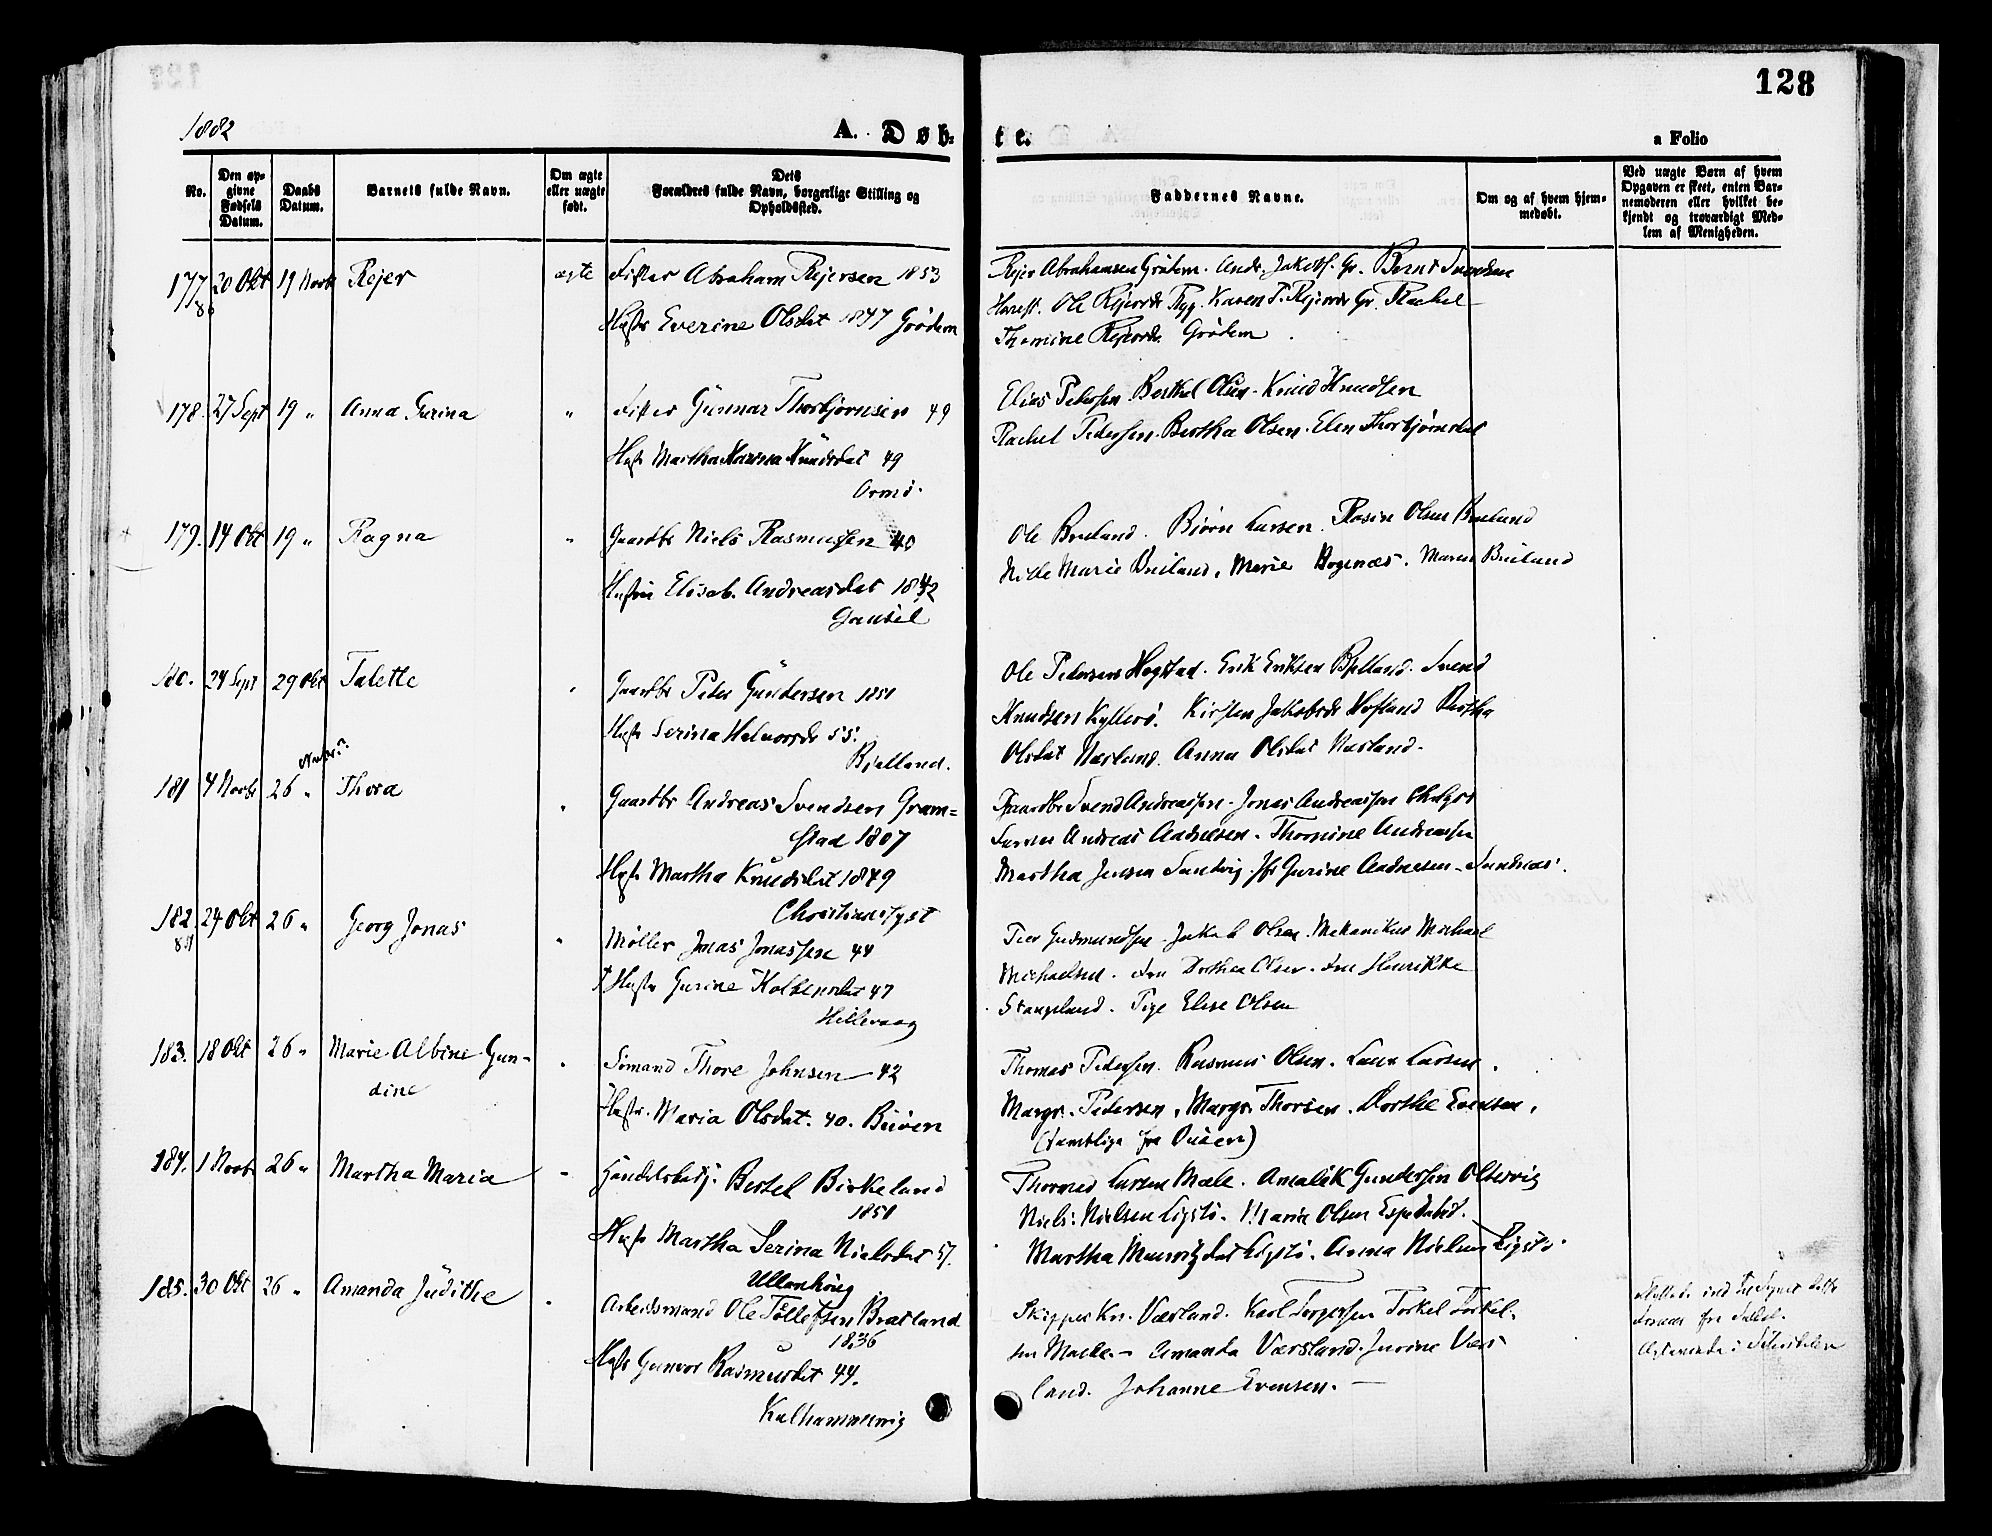 128
1882
A. Døb-
te.
a Folio
No.
Den op-
givne
Fødsels
Datum.
Daabs
Datum.
Barnets fulde Navn.
Om ægte
eller uægte
født.
Dets
Forældres fulde Navn, borgerlige Stilling og
Opholdssted.
Faddernes Navne.
Om og af hvem hjem-
medøbt.
Ved uægte Børn af hvem
Opgaven er skeet, enten Bar-
nemoderen eller hvilket be-
kjendt og troværdigt Med-
lem af Menigheden.
177 20 Okt 19 Novbr Rejer ægte Fisker Abraham Rejersen 1853
80
Hustr Everine Olsdat 1847 Grødem
Rejer Abrahamsen Grødem. Andr. Jakobs. Gr. Bernt Svendsen
Harest. Ole Rejersd. Ryg. Karen P. Rejersd Gr. Rachel
Thomine Rejersd. Grødem
178. 27 Sept 19 " Anna Gurina " Fisker Gunnar Thorbjørnsen 49
Hustr Martha Karina Knudsdat 49
Ormø.
Elias Pedersen. Berthel Olsen. Knud Knudsen
Rachel Pedersen. Bertha Olsen. Elen Thorbjørnsdat
179. 14 Okt 19 " Ragna " Gaardbr Niels Rasmussen 40
Hustru Elisab. Andreasdat 1842
Gausel
Ole Breiland. Bjørn Larsen. Rasm Olsen Breiland
Marie Breiland, Marie Bogenæs. Maren Breiland
180. 24 Sept 29 Okt Talette " Gaardbr Peder Gundersen 1851
Hustr Serina Halvorsdr 55.
Bjelland.
Ole Pedersen Hogstad. Erik Eriksen Bjelland. Svend
Knudsen Kyllesø. Kirsten Jakobsdr Hofland Bertha
Olsdat Narland. Anna Olsdat Narland.
Novbr.?
181 4 Novbr 26 " Thora " Gaardbr Andreas Svendsen Gram-
stad 1807
Hustr Martha Knudsdat 1849
Christianslyst
Gaardbr Svend Andreassen. Jonas Andreassen
Andreas Aadnesen. Thomine Andreassen
Martha Jensen Sandvig. Jfr Gurine Aadnesen. Sundnæs.
182. 24 Okt 26 " Georg Jonas " Møller Jonas Jonassen 44
81
Hustr Gurine Kolbensdat 47
Hillevaag
Peer Gudmundsen. Jakob Olsen. Mekanikus Michael
Michaelsen. Fru Dorthea Olsen. Fru Henrikke
Stangeland. Pige Elise Olsen
183. 18 Okt 26 " Marie Albine Gun-
dine
" Sømand Thore Johnsen 42
Hustr. Maria Olsdat. 40. Buøen
Thomas Pedersen. Rasmus Olsen. Laur Larsen.
Margr. Pedersen, Margr. Thorsen. Dorthe Evensen,
(samtlige fra Buøen)
184. 1 Novbr 26 " Martha Maria " Handelsbetj. Bertel Birkeland
1851
Hustr Martha Serina Nielsdat 57.
Ullenhoug
Thomas Larsen Mæle. Amalik Gundersen Oltesvig
Niels Nielsen Ligstø. Maria Olsen Espedalst.
Martha Mauritzdat Ligstø. Anna Nielsen Ligstø
185. 30 Okt 26 " Amanda Judithe " Arbeidsmand Ole Tollefsen Bratland
1836
Hustr Gunvor Rasmusdat 44.
Kalhammervig
Skipper Kr.Værsland. Karl Torgersen Torkel Torkel-
sen Maele. - Amanda Værsland. Jurine Værs
land. Johanne Evensen. -